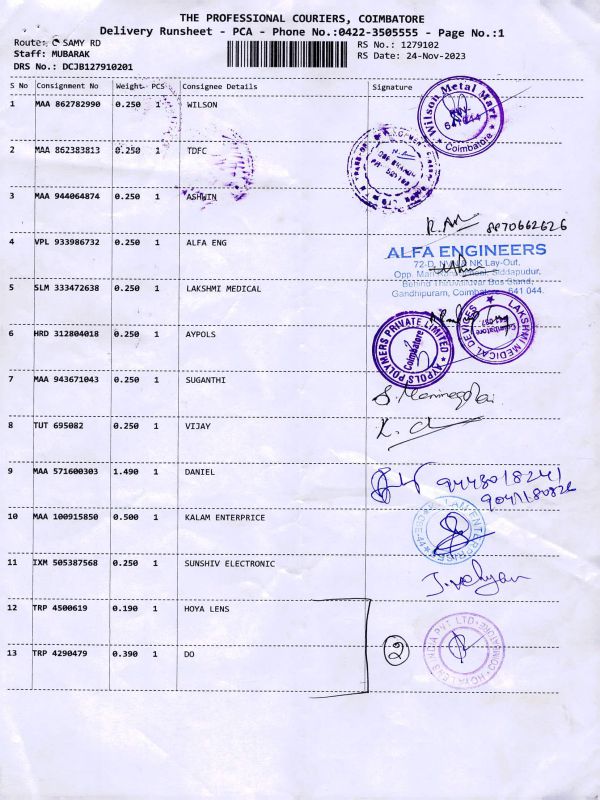 THE PROFESSIONAL COURIERS, COIMBATORE
Delivery Runsheet - PCA - Phone No.:0422-3505555 - Page No.:1
Route: C SAMY RD
RS No.: 1279102
Staff: MUBARAK
RS Date: 24-Nov-2023
DRS No.: DCJB127910201
S No Consignment No Weight PCS Consignee Details Signature
1 MAA 862782990 0.250 1 WILSON
Wilson Metal Mart
Coimbatore
2 MAA 862383813 0.250 1 TDFC
3 MAA 944064874 0.250 1 ASHWIN
8870662626
4 VPL 933986732 0.250 1 ALFA ENG
ALFA ENGINEERS
72-D, NK Lay-Out,
Opp. Siddapudur,
Behind Bus Stand,
Gandhipuram, 641 044.
5 SLM 333472638 0.250 1 LAKSHMI MEDICAL
LAKSHMI MEDICAL DEVICES
Coimbatore
6 HRD 312804018 0.250 1 AYPOLS
AYPOLS POLYMERS PRIVATE LIMITED
Coimbatore
7 MAA 943671043 0.250 1 SUGANTHI
8 TUT 695082 0.250 1 VIJAY
9 MAA 571600303 1.490 1 DANIEL
10 MAA 100915850 0.500 1 KALAM ENTERPRICE
11 IXM 505387568 0.250 1 SUNSHIV ELECTRONIC
12 TRP 4500619 0.190 1 HOYA LENS
13 TRP 4290479 0.390 1 DO
2
HOYA LENS INDIA PVT LTD
COIMBATORE